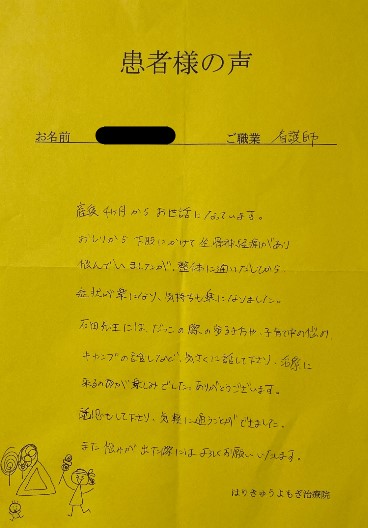 患者様の声
お名前 ご職業 看護師
産後4ヶ月からお世話になっています。
おしりから下肢にかけて坐骨神経痛があり
悩んでいましたが、整体に通いだしてから
症状が楽になり、気持ちも楽になりました。
石田先生には、だっこの際の歩き方や、子育ての悩み、
キャンプの話しなど、気さくに話して下さり、治療に
来るのが楽しみでした。ありがとうございます。
もして下さり、気軽に通うことができました。
また悩みが出た際にはよろしくお願いいたします。
はりきゅうよもぎ治療院